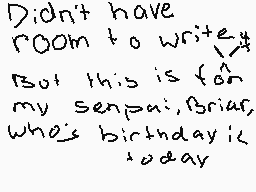 Didn't have
room to write
But this is for
my senpai, Briar,
who's birthday is
today